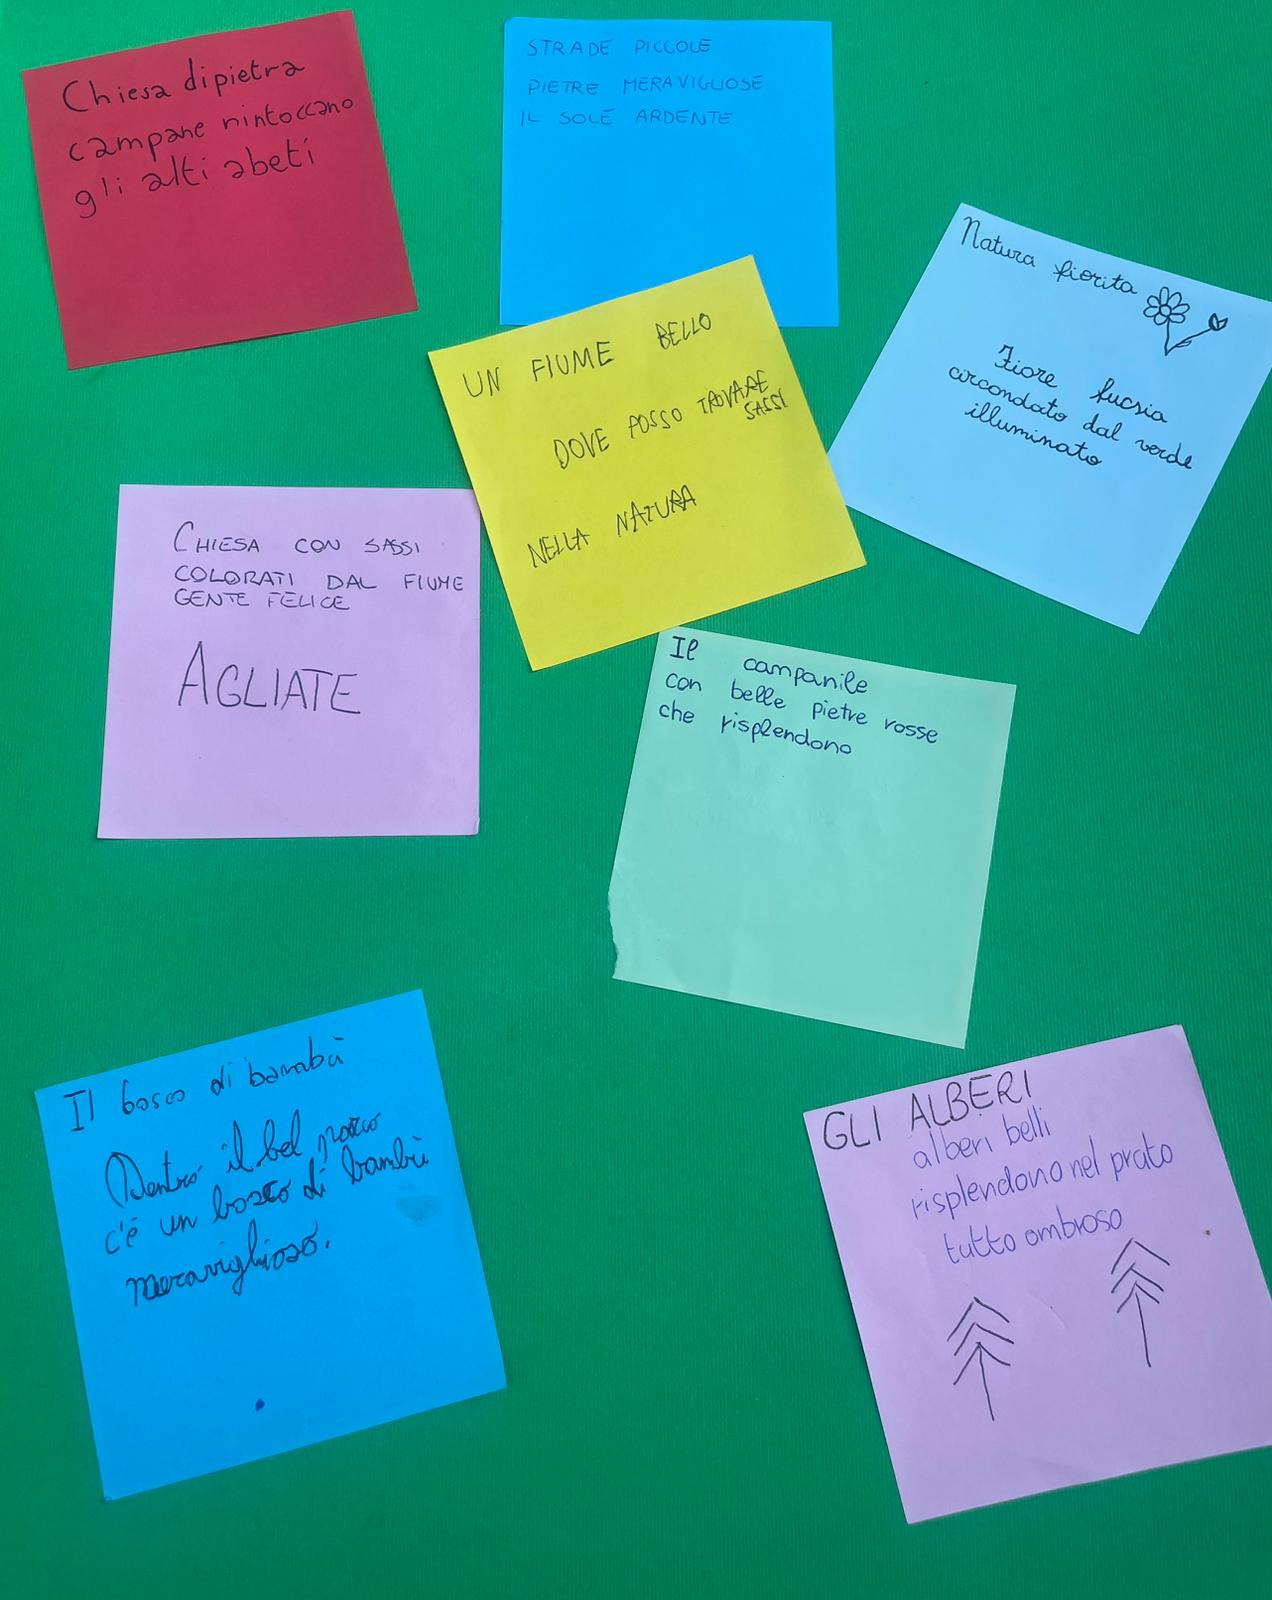 Chiesa di pietra
campane rintoccano
gli alti abeti
STRADE PICCOLE
PIETRE MERAVIGLIOSE
IL SOLE ARDENTE
Natura fiorita
Fiore fucsia
circondato dal verde
illuminato
UN FIUME BELLO
DOVE POSSO TROVARE
SASSI
NELLA NATURA
CHIESA CON SASSI
COLORATI DAL FIUME
GENTE FELICE
AGLIATE
Il campanile
con belle pietre rosse
che risplendono
Il bosco di bambù
Dentro il bel parco
c'é un bosco di bambù
meraviglioso.
GLI ALBERI
alberi belli
risplendono nel prato
tutto ombroso